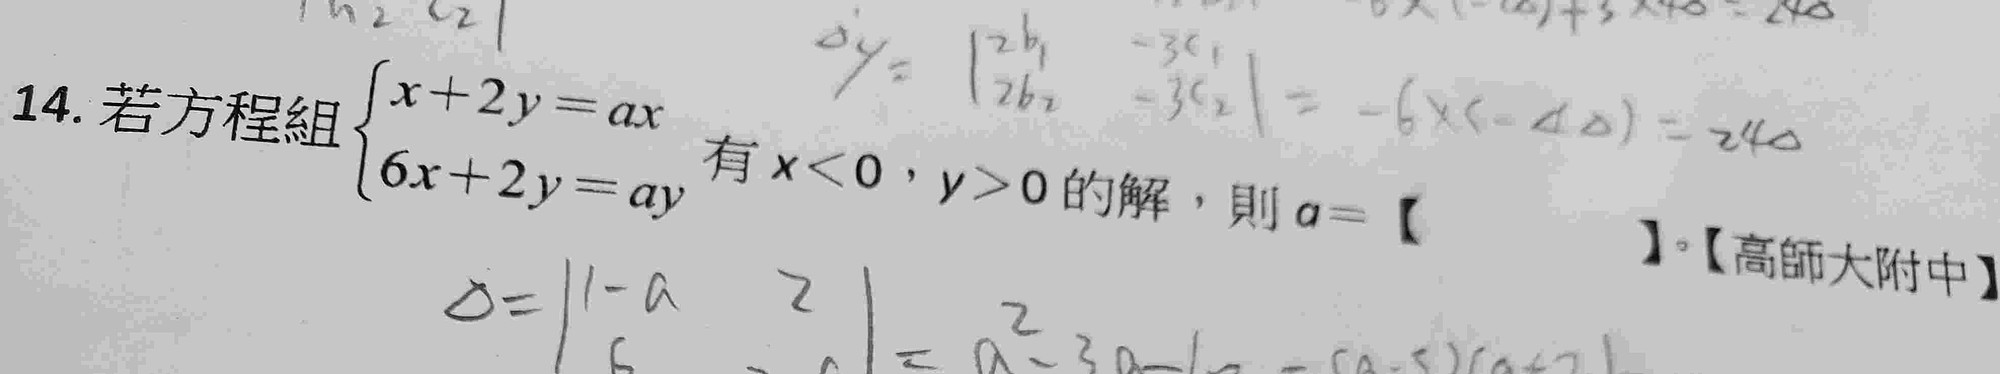 h₂ c₂|
-6×(-4△)+3×4△=24△
△y= |2b₁ -3c₁|
|2b₂ -3c₂| = -6×(-4△) = 24△
14. 若方程組{x+2y=ax
6x+2y=ay 有 x<0,y>0 的解,則 a=【 】。【高師大附中】
△= |1-a 2|
= a²-3a-10 = (a-5)(a+2)